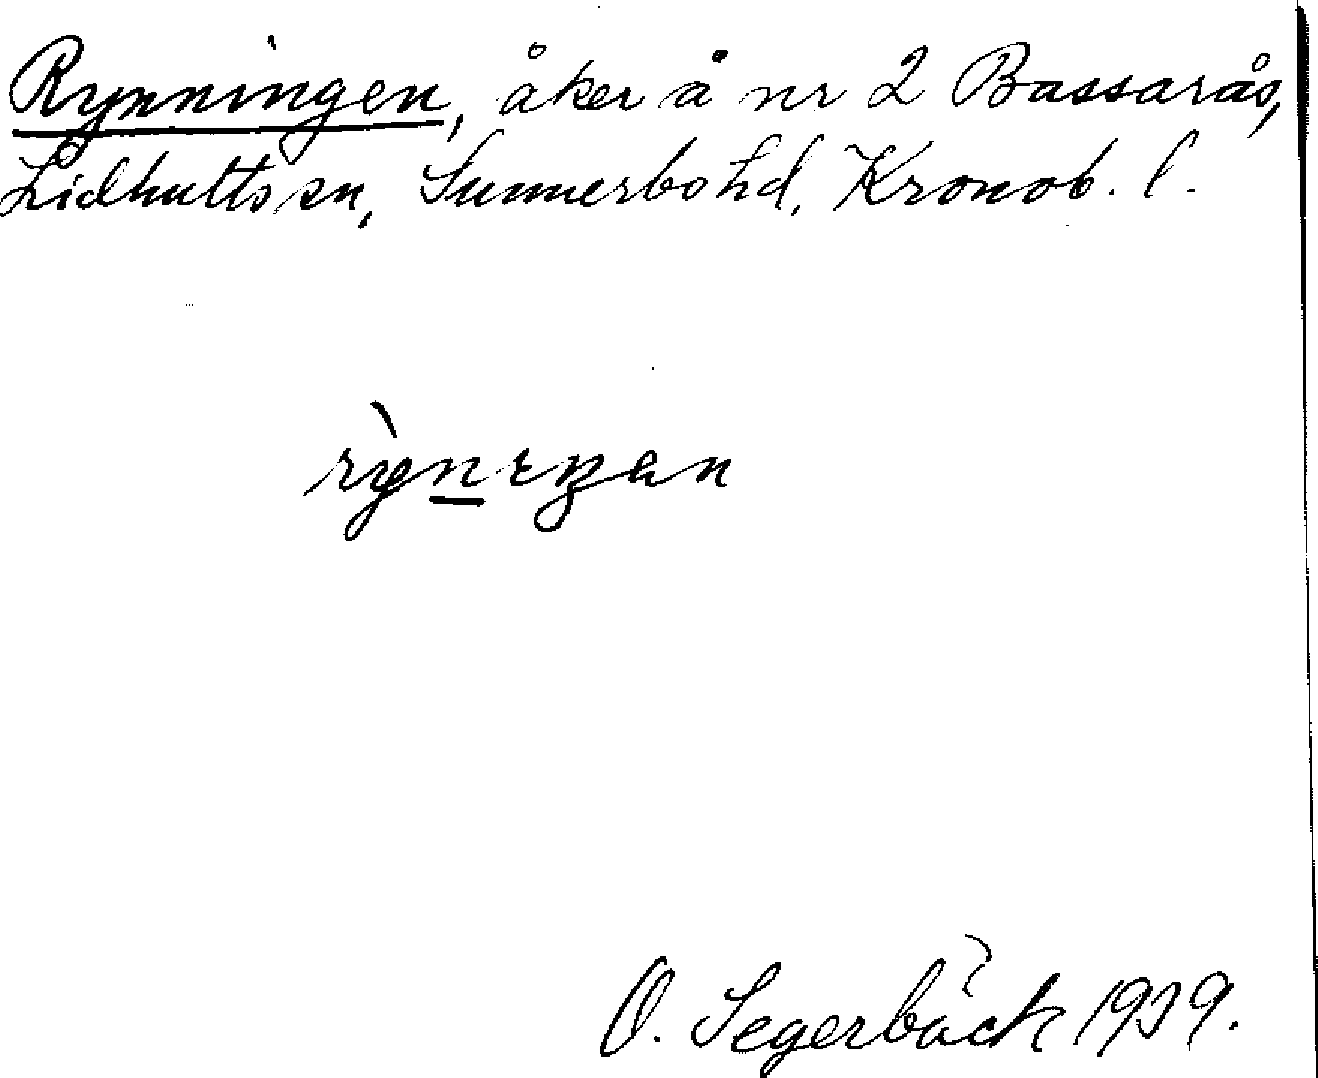 Rynningen, åker å nr 2 Bassarås,
Lidhults sn, Sunnerbo hd, Kronob. l.
O. Segerbäck 1939.